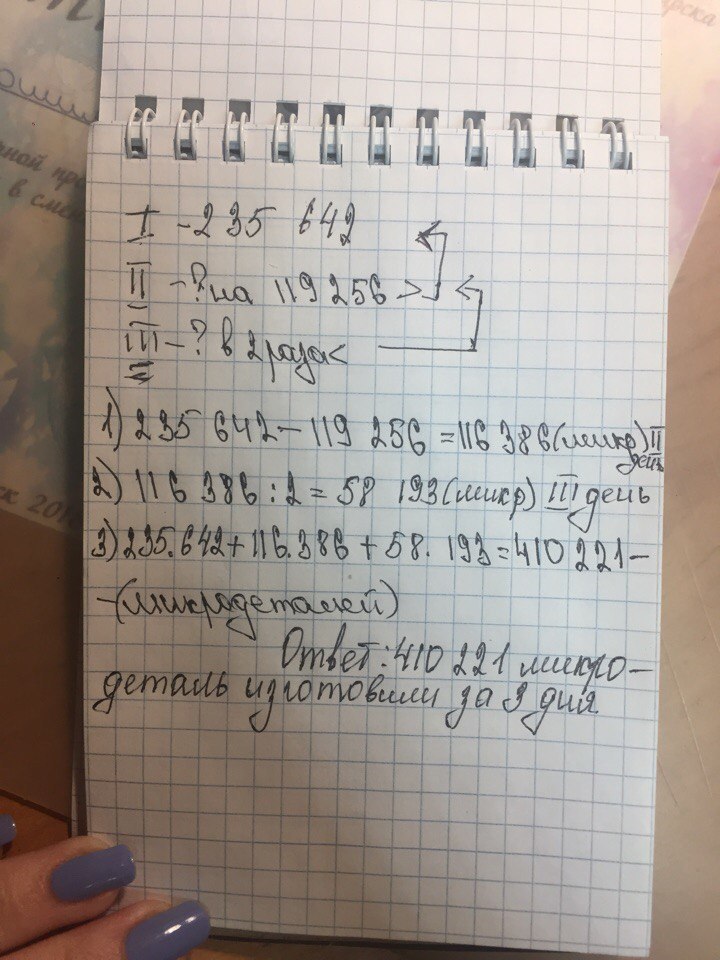 I - 235 642
II - ? на 119 256 >
III - ? в 2 раза <
1) 235 642 - 119 256 = 116 386 (микр) II день
2) 116 386 : 2 = 58 193 (микр) III день
3) 235.642 + 116.386 + 58.193 = 410 221 -
- (микродеталей)
Ответ: 410 221 микро-
деталь изготовили за 3 дня